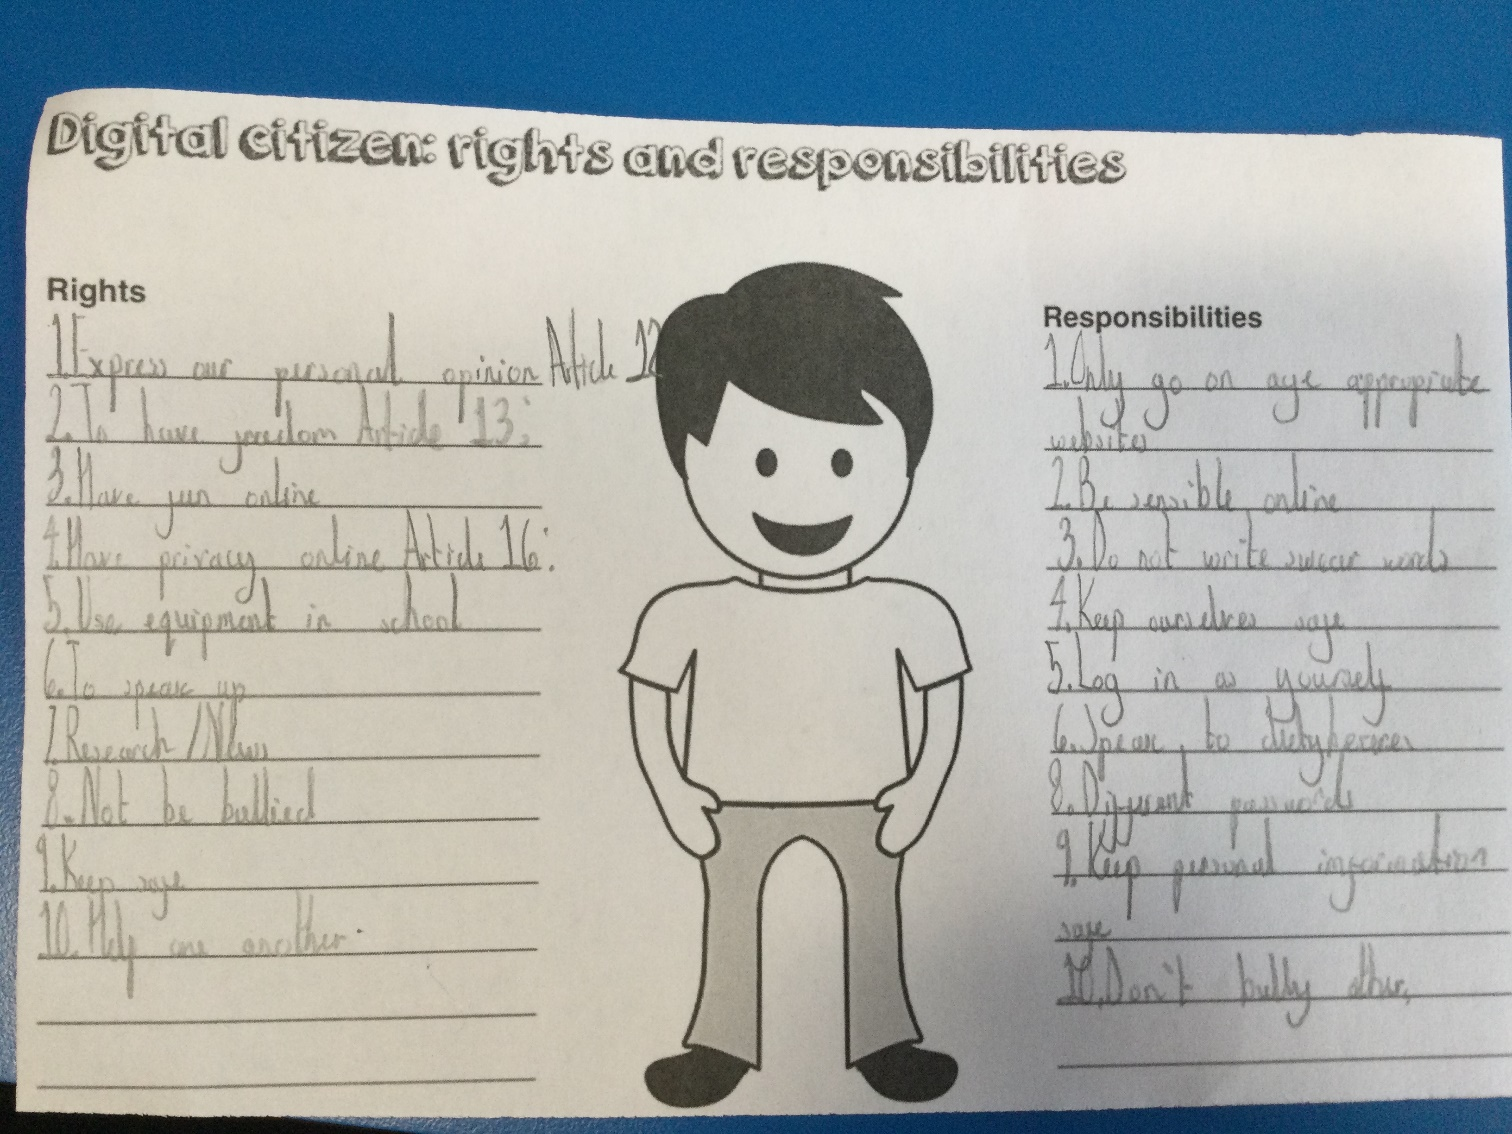 Digital citizen: rights and responsibilities
Rights
1 Express our personal opinion Article 12
2. To have freedom Article 13:
3. Have fun online
4. Have privacy online Article 16:
5. Use equipment in school
6. To speak up
7. Research /News
8. Not be bullied
9. Keep safe
10. Help one another.
Responsibilities
1. Only go on age appropriate
websites
2. Be sensible online
3. Do not write swear words
4. Keep ourselves safe
5. Log in as yourself
6. Speak to
8. Different passwords
9. Keep personal information
safe
10. Don't bully other,